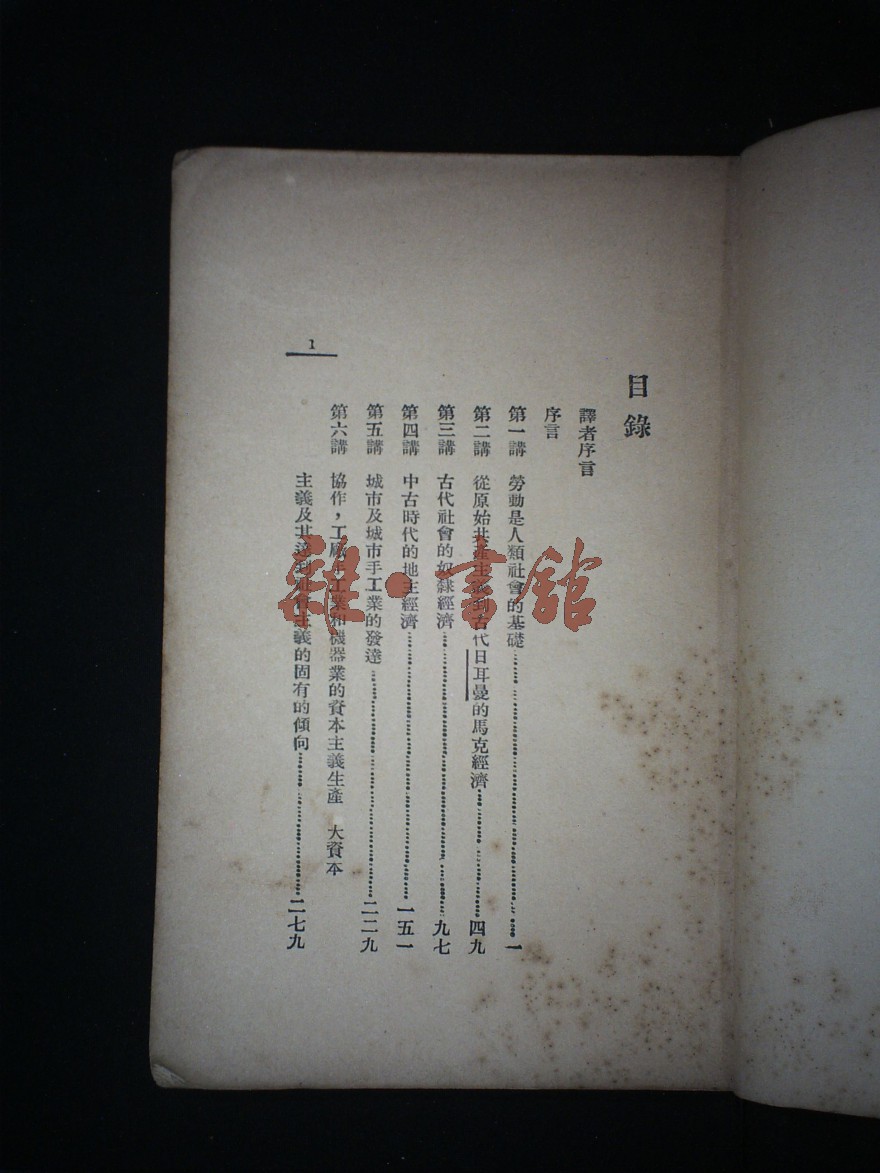 目錄
譯者序言
序言
第一講　勞動是人類社會的基礎……一
第二講　從原始共產主義到古代日耳曼的馬克經濟……四九
第三講　古代社會的奴隸經濟……九七
第四講　中古時代的地主經濟……一五一
第五講　城市及城市手工業的發達……二二九
第六講　協作，工廠手工業和機器業的資本主義生產　大資本
主義及其達到社會主義的固有的傾向……二七九
1
雜·言館